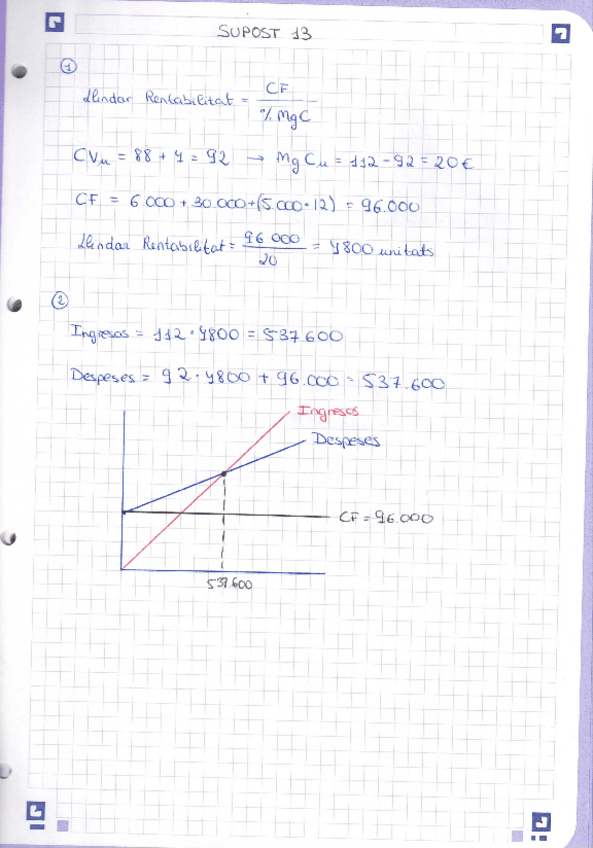 SUPOST 13
1
Llindar Rentabilitat = CF / % MgC
CVu = 88 + 4 = 92 → MgCu = 112 - 92 = 20€
CF = 6.000 + 30.000 + (5.000 · 12) = 96.000
Llindar Rentabilitat = 96 000 / 20 = 4800 unitats
2
Ingresos = 112 · 4800 = 537.600
Despeses = 92 · 4800 + 96.000 = 537.600
Ingresos
Despeses
CF = 96.000
537.600